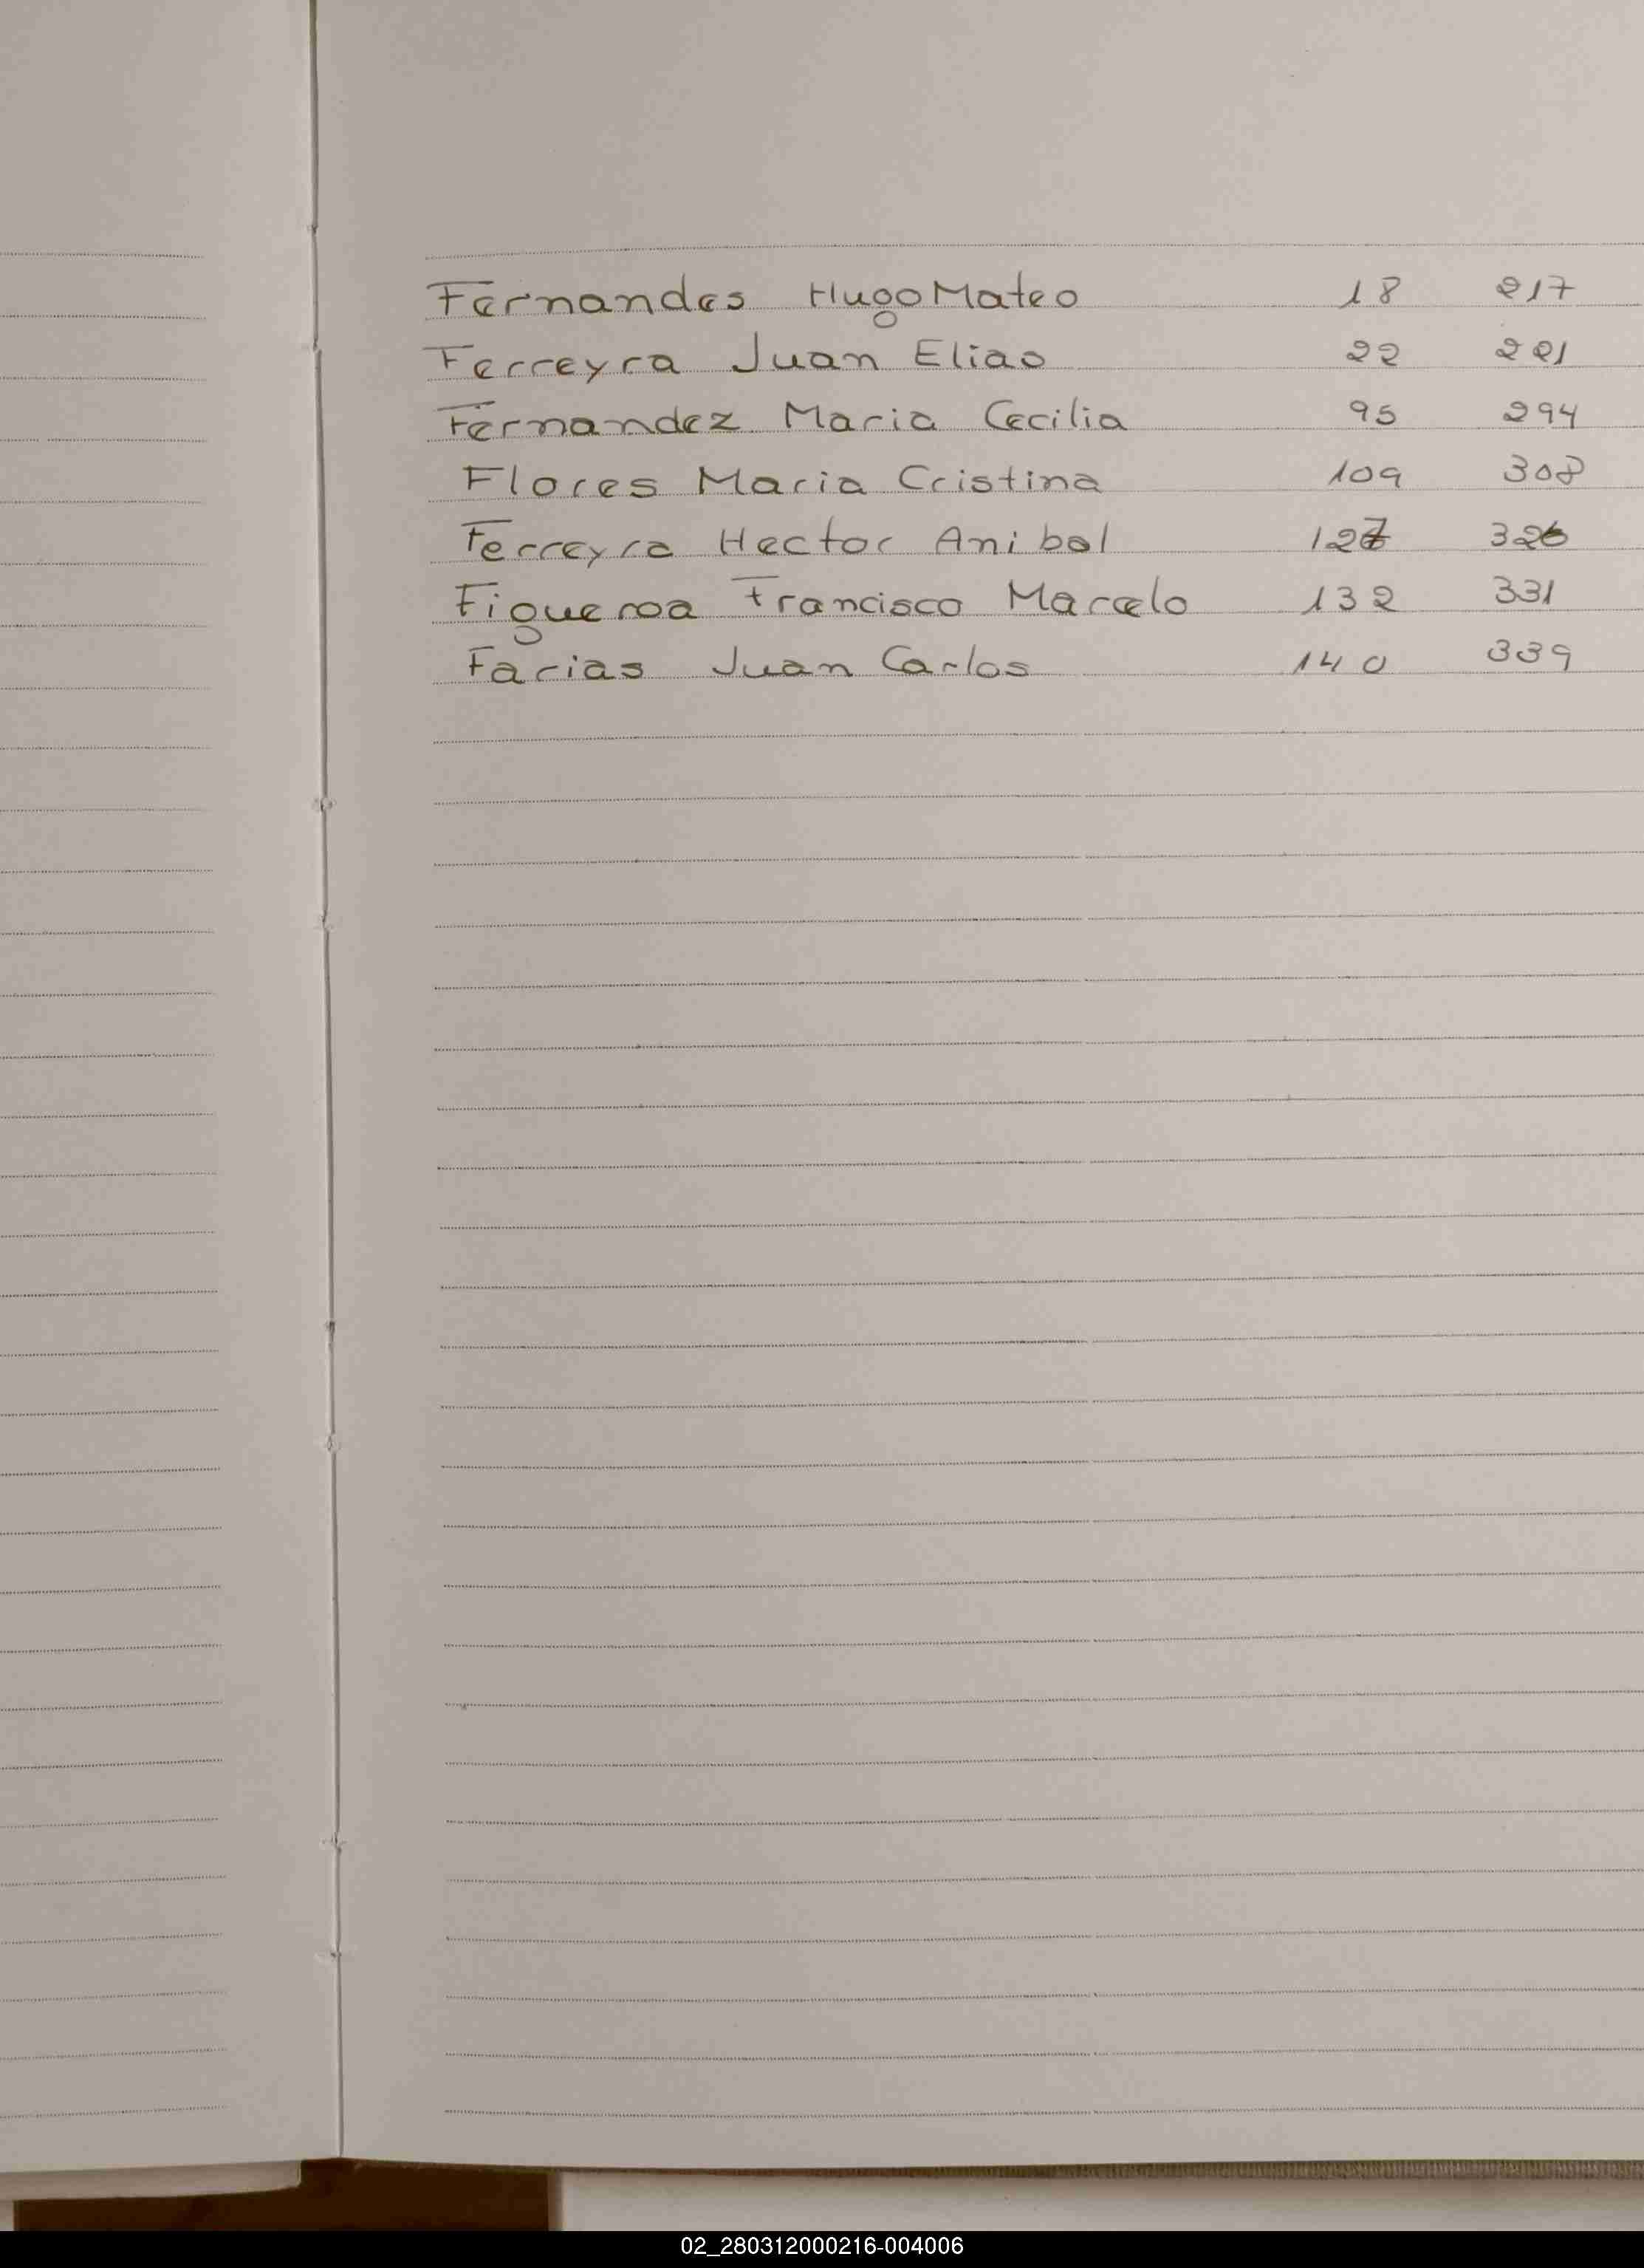 Fernandes Hugo Mateo 18 217
Ferreyra Juan Elias 22 221
Fernandez Maria Cecilia 95 294
Flores Maria Cristina 109 308
Ferreyra Hector Anibal 127 326
Figueroa Francisco Marcelo 132 331
Farias Juan Carlos 140 339
02_280312000216-004006